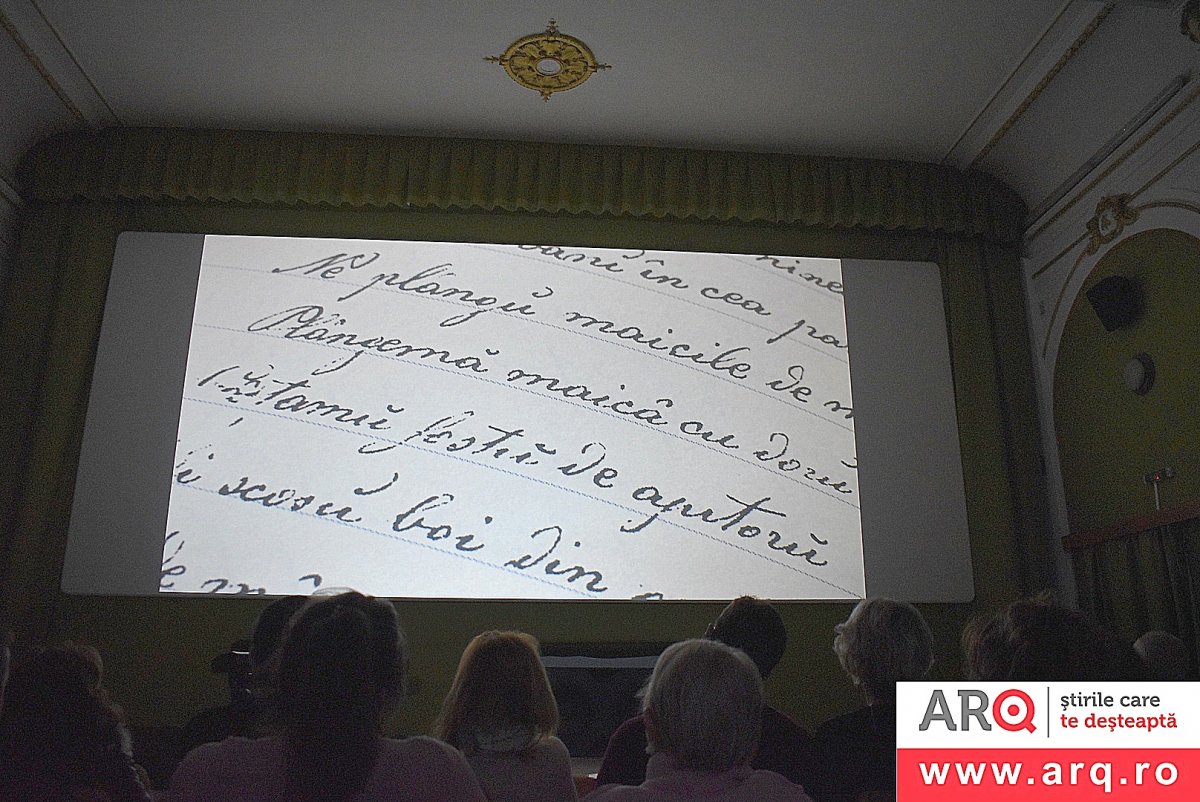 în cea
Ne plângŭ maicile de
Plângemă maică cu dorŭ
fostŭ de ajutorŭ
scosŭ boi din
ARQ
știrile care
te deșteaptă
www.arq.ro